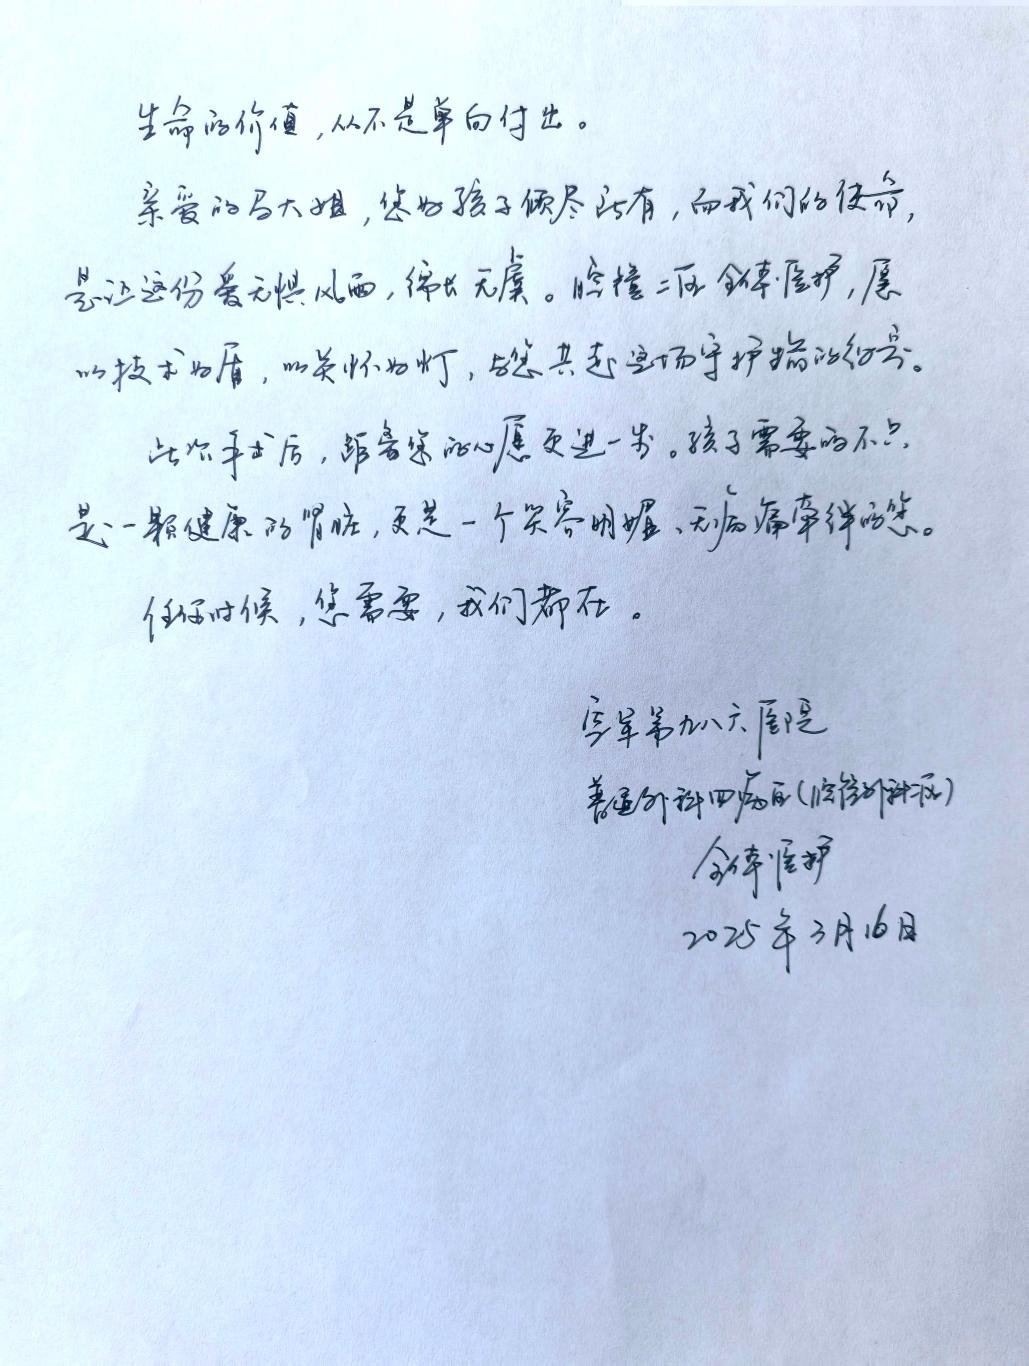 生命的价值，从不是单向付出。
亲爱的马大姐，您为孩子倾尽所有，而我们的使命，
是让这份爱无惧风雨，绵长无虞。腔镜二区全体医护，愿
以技术为盾，以关怀为灯，与您共赴这场守护生命的约定。
此次手术后，距离您的心愿更进一步。孩子需要的不只
是一颗健康的肾脏，更是一个笑容明媚、无病痛牵绊的您。
任何时候，您需要，我们都在。
空军第九八六医院
普通外科四病区（腔镜外科二区）
全体医护
2025年3月16日